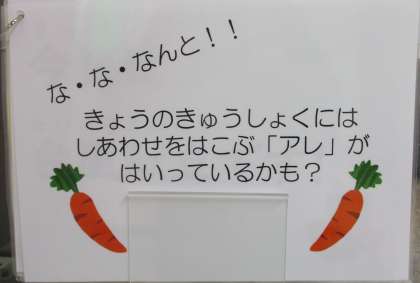 な・な・なんと！！
きょうのきゅうしょくには
しあわせをはこぶ「アレ」が
はいっているかも？